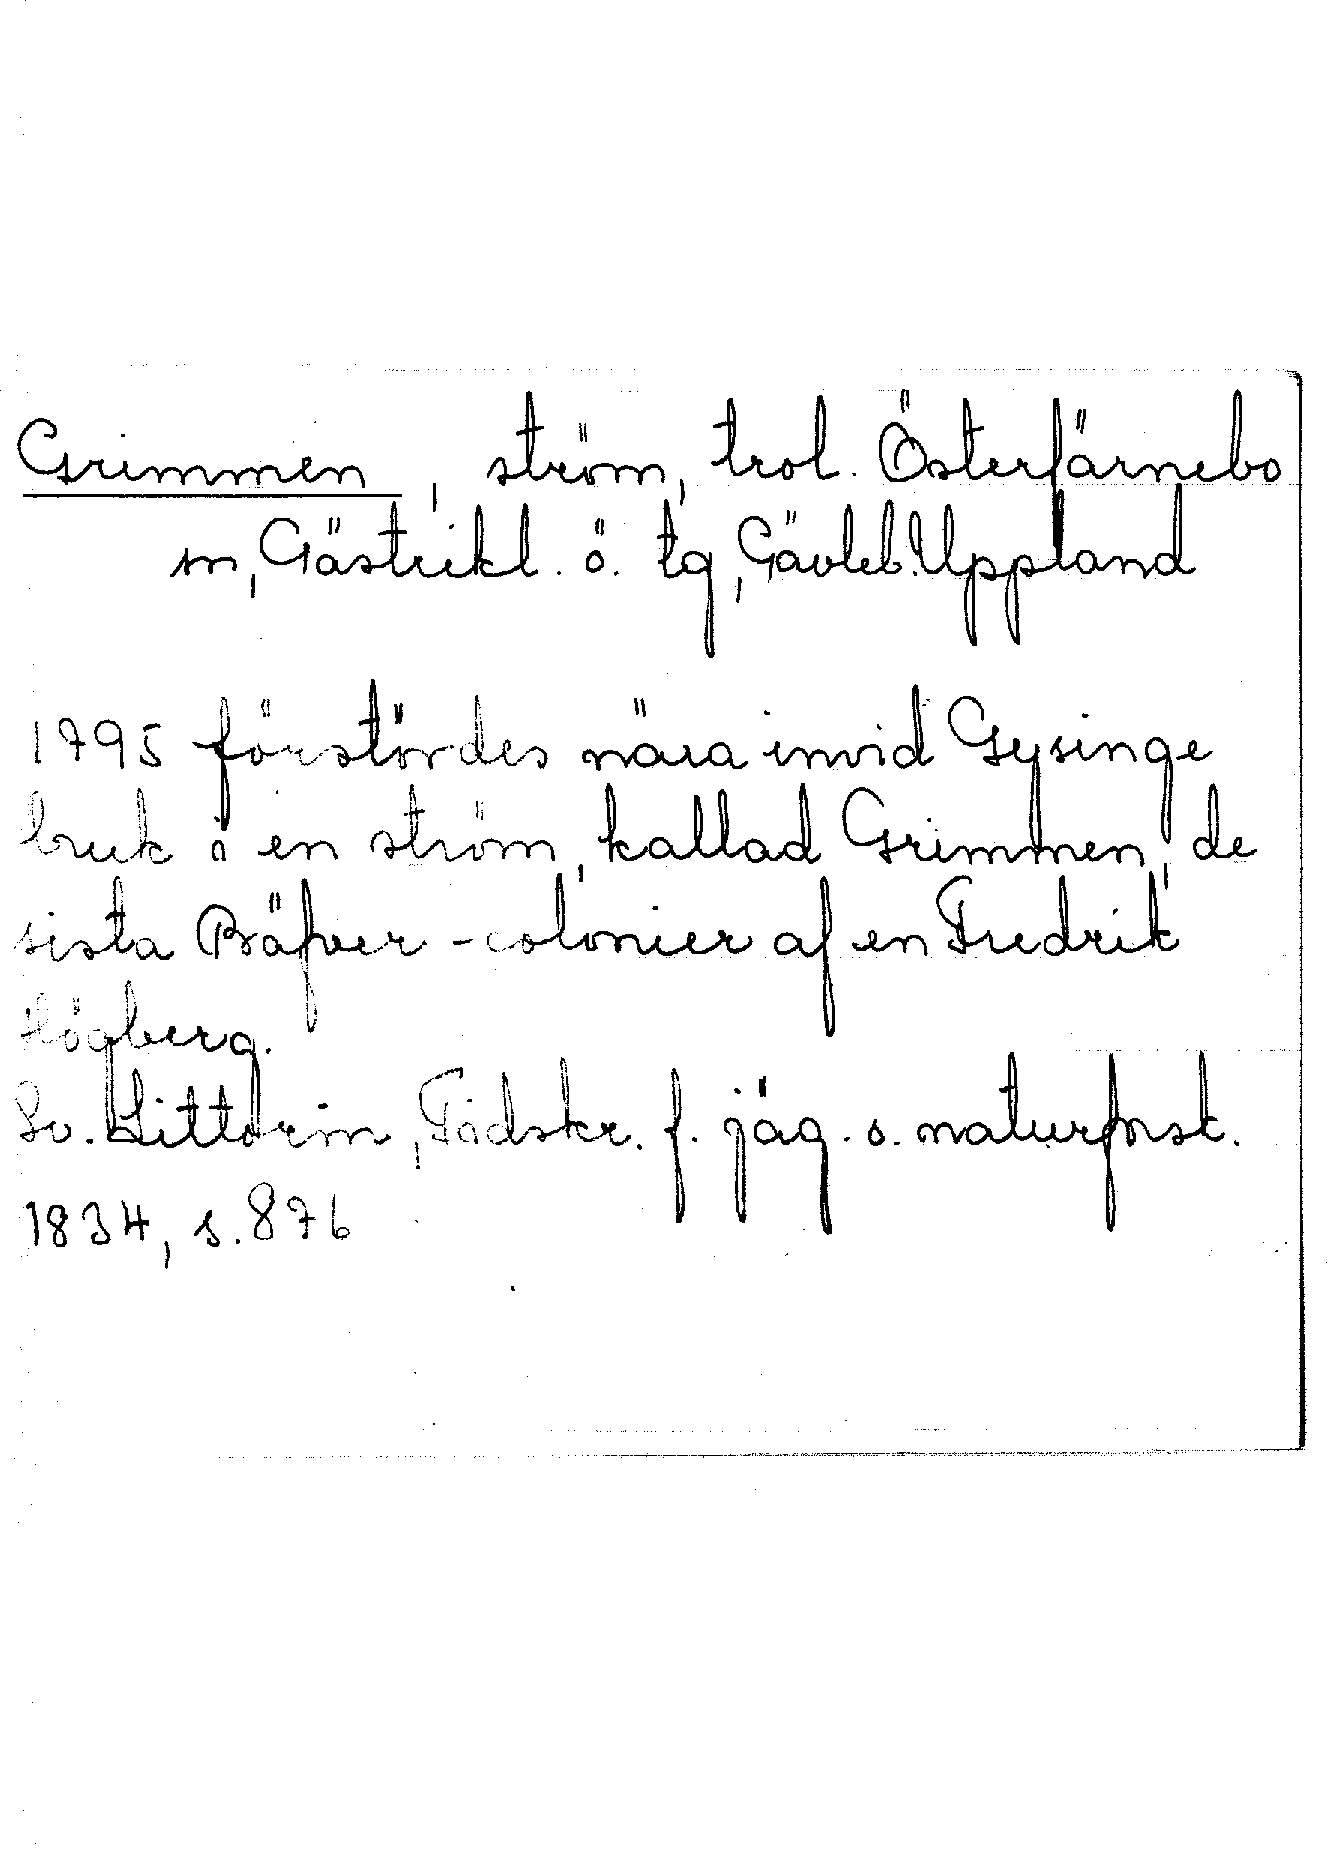 Grimmen, ström, trol. Österfärnebo
sn, Gästrikl. ö. tg, Gävleb. Uppland
1795 förstördes nära invid Gysinge
bruk i en ström, kallad Grimmen, de
sista Bäfver-colonier af en Fredrik
Högberg.
Sv. Littorin, Tidskr. f. jäg. o. naturforsk.
1834, s. 876